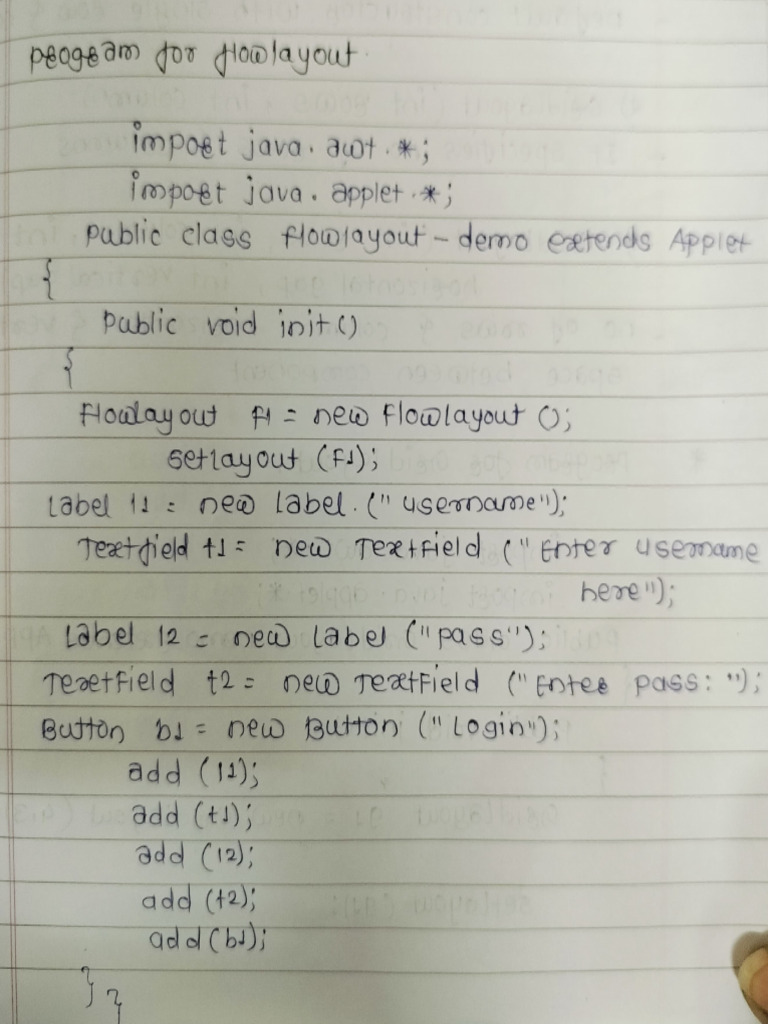 program for flowlayout.
import java. awt .*;
import java. applet .*;
public class flowlayout - demo extends Applet
{
public void init ()
{
flowlayout f1 = new flowlayout ();
setlayout (f1);
Label l1 = new Label. ("username");
Textfield t1 = new Textfield ("Enter username
here");
Label l2 = new Label ("pass");
Textfield t2 = new Textfield ("Enter pass: ");
Button b1 = new Button ("Login");
add (l1);
add (t1);
add (l2);
add (t2);
add (b1);
} }